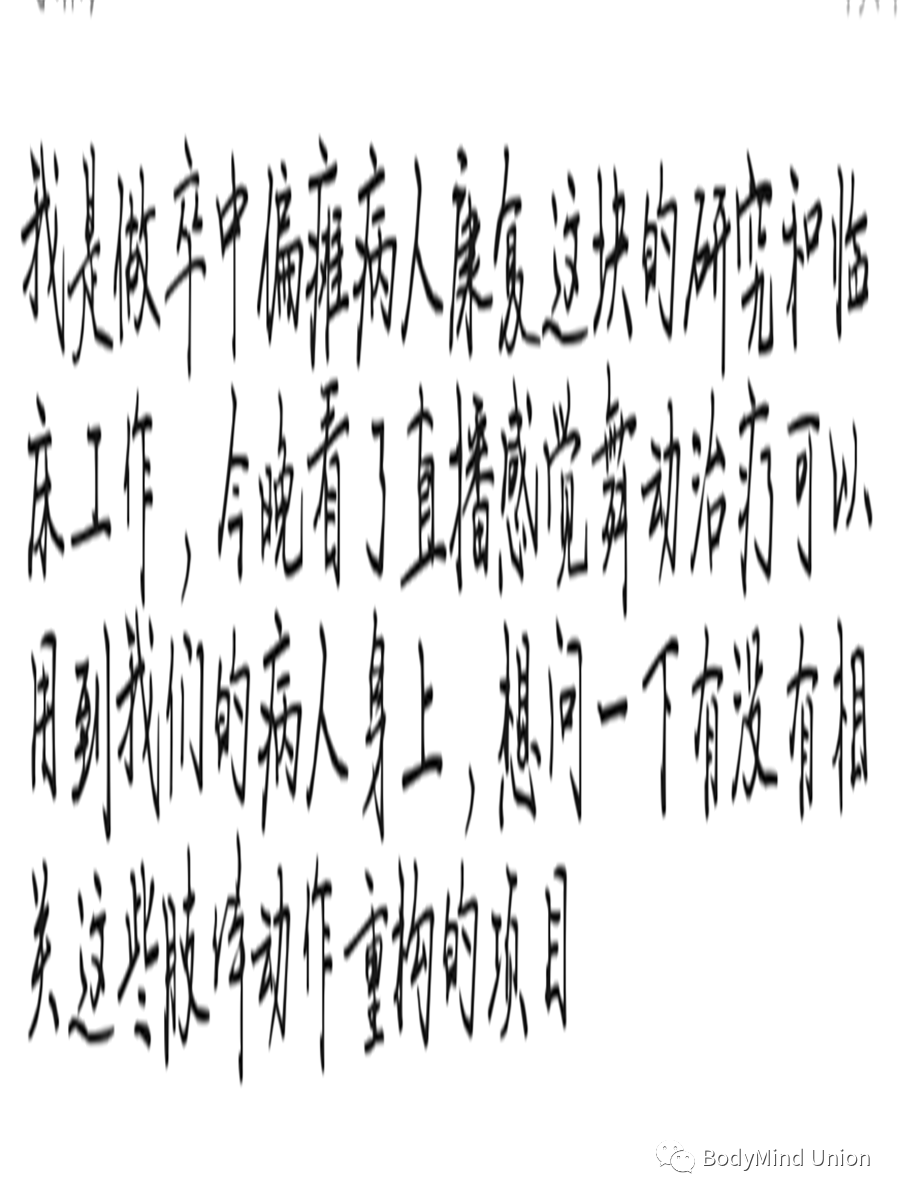 我是做卒中偏瘫病人康复这块的研究和临
床工作，今晚看了直播感觉舞动治疗可以
用到我们的病人身上，想问一下有没有相
关这些肢体动作重构的项目
BodyMind Union